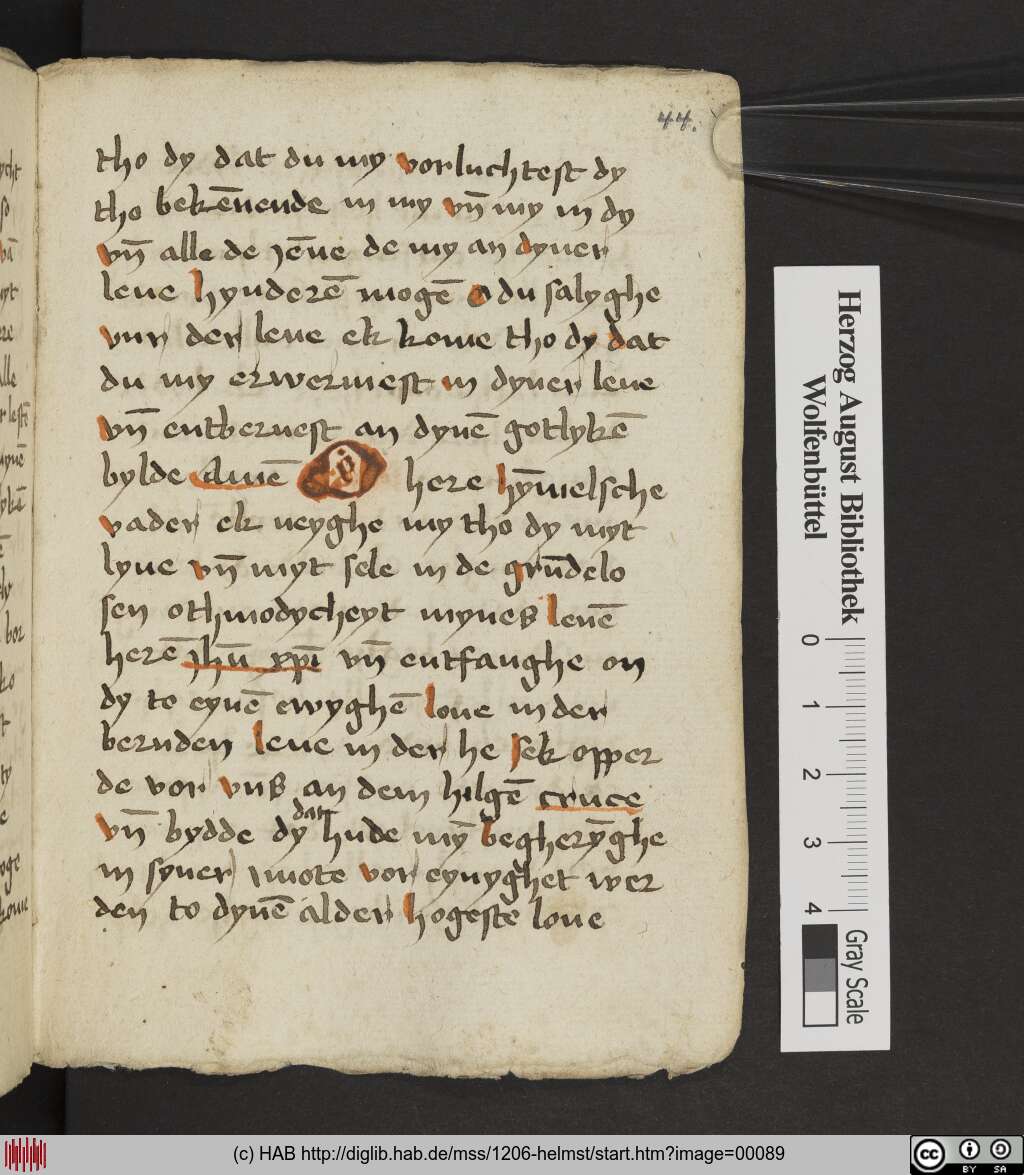 44.
tho dy dat du my vorluchtest dy
tho bekēnende in my vn̄ my in dy
vn̄ alle de jēne de my an dyner
leue hynderē mogē o du salyghe
vur der leue ek kome tho dy dat
du my erwermest in dyner leue
vn̄ entbernest an dynē gotlykē
bylde Amē here hȳmelsche
vader ek neyghe my tho dy myt
lyue vn̄ myt sele in de grūdelo
sen othmodycheyt mynes leuē
herē jhū xpī vn̄ entfanghe on
dy to eynē ewyghē loue in der
bernden leue in der he sek opper
de vor vns an dem hilgē cruce
vn̄ bydde dy dat hude mȳ begherȳghe
in syner mote vor eynyghet wer
den to dynē alder hogeste loue
Herzog August Bibliothek
Wolfenbüttel
0 1 2 3 4
Gray Scale
(c) HAB http://diglib.hab.de/mss/1206-helmst/start.htm?image=00089
cc BY SA